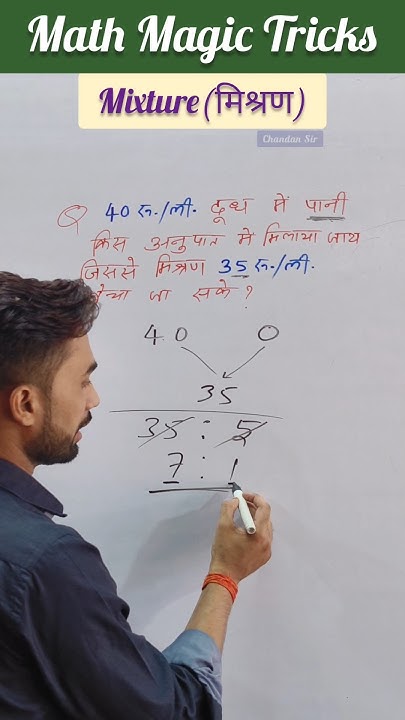 Math Magic Tricks
Mixture(मिश्रण)
Chandan Sir
Q 40 रु./ली. दूध में पानी
किस अनुपात में मिलाया जाय
जिससे मिश्रण 35 रु./ली.
बेचा जा सके ?
40 0
35
35 : 5
7 : 1